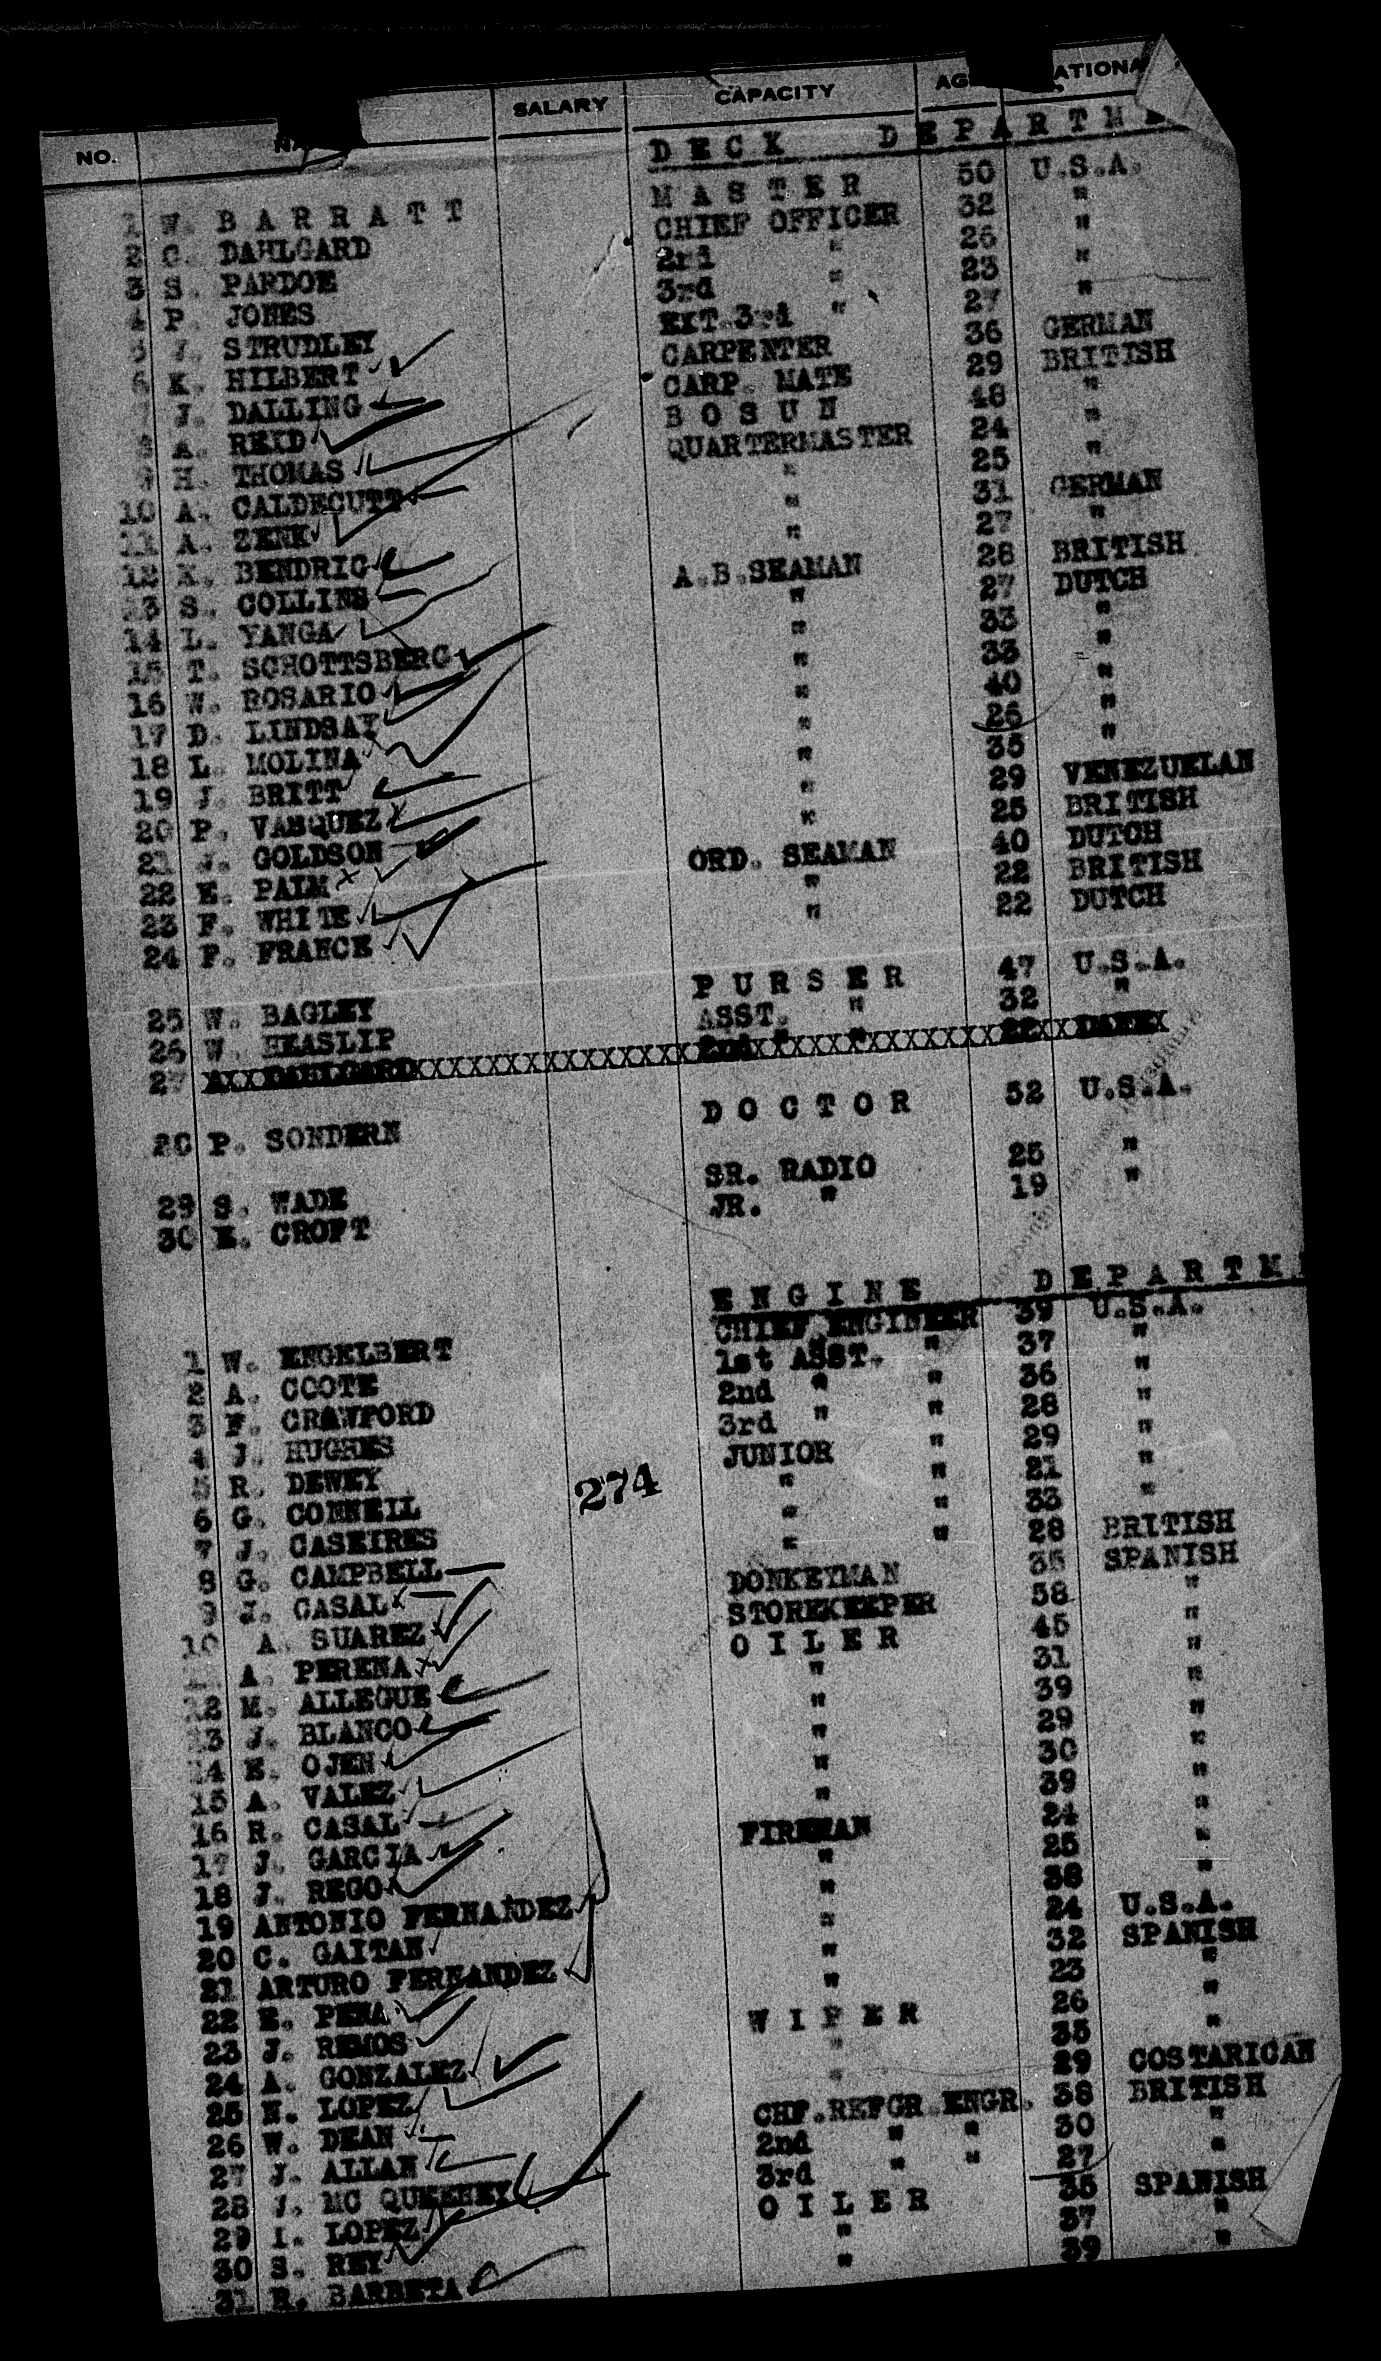 NO. NA SALARY CAPACITY AG ATIONA
DECK DEPARTME
1 W. BARRATT MASTER 50 U.S.A.
2 C. DAHLGARD CHIEF OFFICER 32 "
3 S. PARDOE 2nd " 26 "
4 P. JONES 3rd " 23 "
5 J. STRUDLEY EXT.3rd " 27 "
6 K. HILBERT CARPENTER 36 GERMAN
7 J. DALLING CARP. MATE 29 BRITISH
8 A. REID BOSUN 48 "
9 H. THOMAS QUARTERMASTER 24 "
10 A. CALDECUTT " 25 "
11 A. ZENK " 31 GERMAN
12 K. BENDRIG " 27 "
13 S. COLLINS A.B.SEAMAN 28 BRITISH
14 L. YANGA " 27 DUTCH
15 T. SCHOTTSBERG " 33 "
16 W. ROSARIO " 33 "
17 D. LINDSAY " 40 "
18 L. MOLINA " 26 "
19 J. BRITT " 35 "
20 P. VASQUEZ " 29 VENEZUELAN
21 J. GOLDSON " 25 BRITISH
22 E. PALM ORD. SEAMAN 40 DUTCH
23 F. WHITE " 22 BRITISH
24 F. FRANCE " 22 DUTCH
25 W. BAGLEY PURSER 47 U.S.A.
26 W. HEASLIP ASST. " 32 "
27 A. DAHLGARD 2nd " " 22
28 P. SONDERN DOCTOR 52 U.S.A.
29 S. WADE SR. RADIO 25 "
30 E. CROFT JR. " 19 "
ENGINE DEPARTM
1 W. ENGELBERT CHIEF ENGINEER 39 U.S.A.
2 A. COOTE 1st ASST. " 37 "
3 F. CRAWFORD 2nd " " 36 "
4 J. HUGHES 3rd " " 28 "
5 R. DEWEY JUNIOR " 29 "
6 G. CONNEIL " " 21 "
7 J. CASEIRES " " 33 "
8 G. CAMPBELL " " 28 BRITISH
9 J. CASAL DONKEYMAN 35 SPANISH
10 A. SUAREZ STOREKEEPER 58 "
11 A. PERENA OILER 45 "
12 M. ALLEGUE " 31 "
13 J. BLANCO " 39 "
14 E. OJEN " 29 "
15 A. VALEZ " 30 "
16 R. CASAL " 39 "
17 J. GARCIA FIREMAN 24 "
18 J. REGO " 25 "
19 ANTONIO FERNANDEZ " 38 "
20 C. GAITAN " 24 U.S.A.
21 ARTURO FERNANDEZ " 32 SPANISH
22 E. PENA " 23 "
23 J. REMOS WIPER 26 "
24 A. GONZALEZ " 35 "
25 N. LOPEZ " 29 COSTARICAN
26 W. DEAN CHF.REFGR.ENGR. 38 BRITISH
27 J. ALLAN 2nd " " 30 "
28 J. MC QUEENEY 3rd " " 27 "
29 I. LOPEZ OILER 35 SPANISH
30 S. REY " 37 "
31 R. BARBETA " 39 "
274